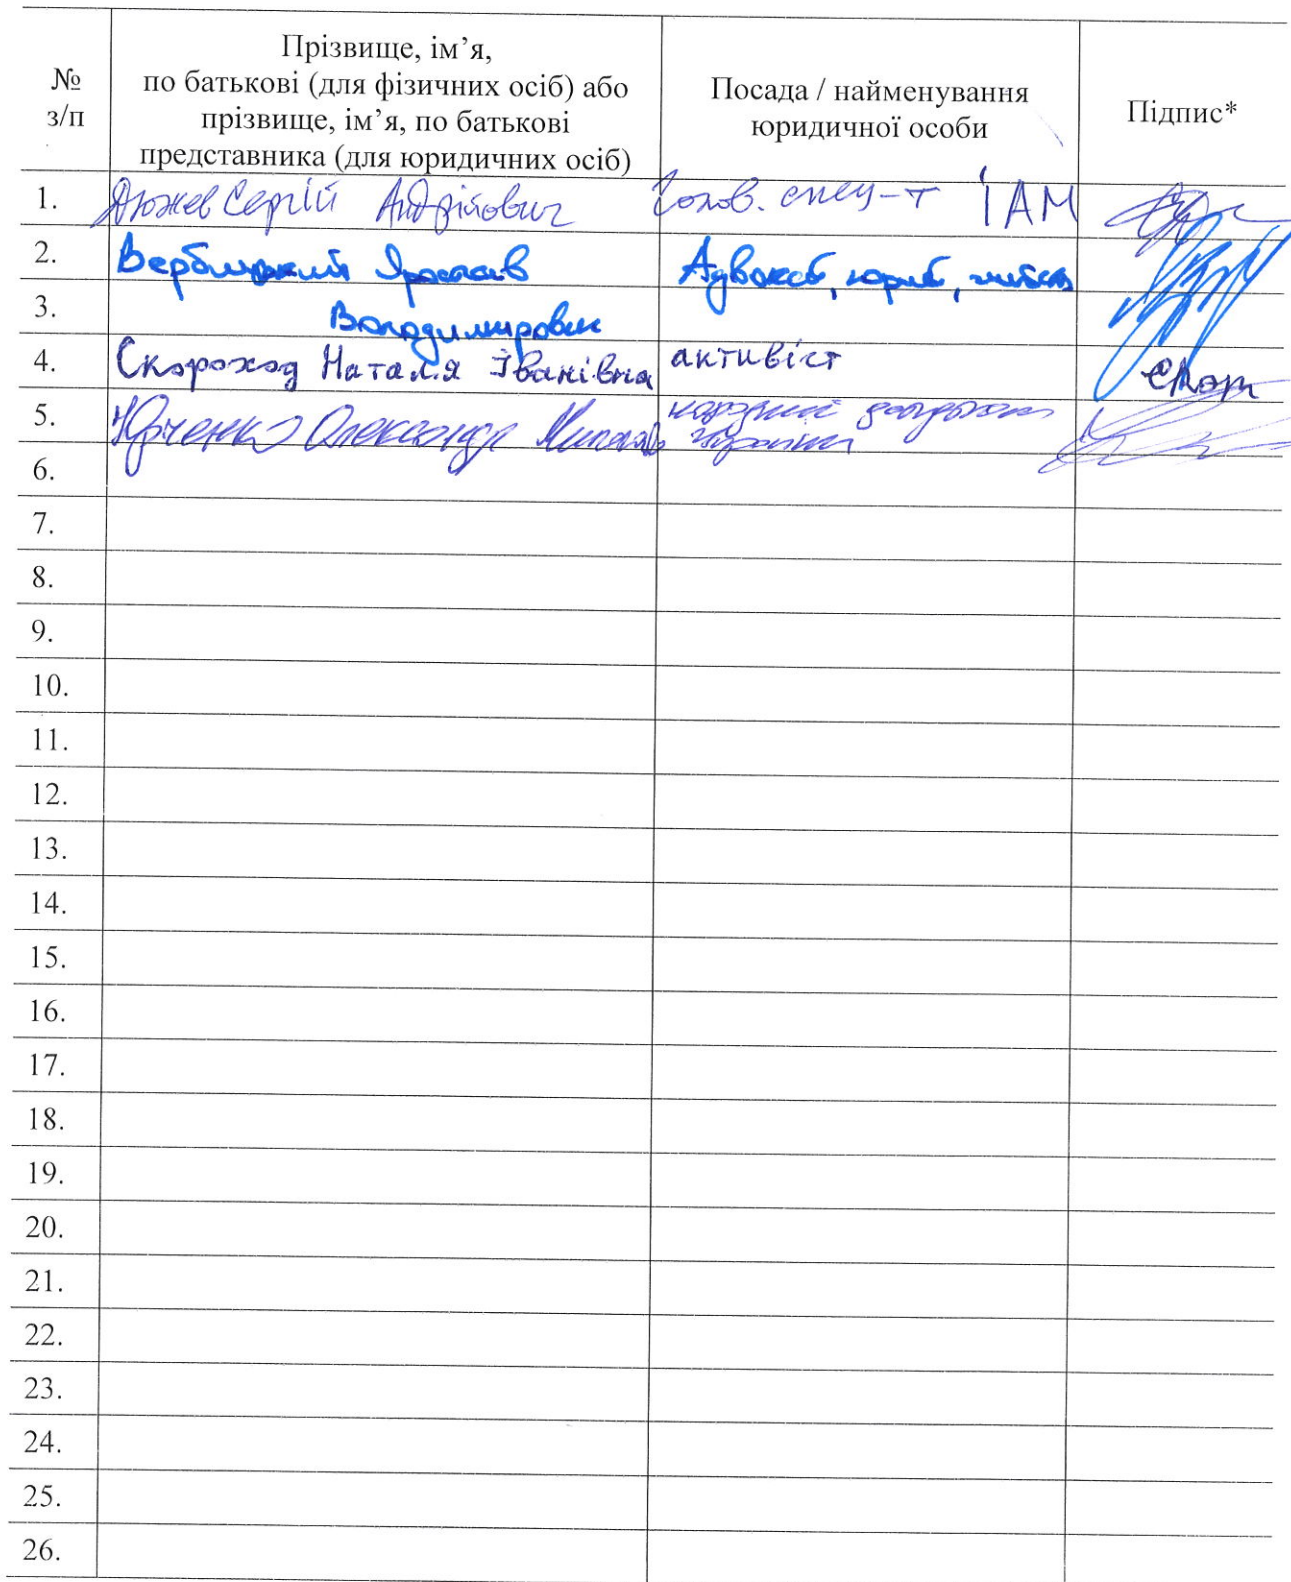 №
з/п
Прізвище, ім’я,
по батькові (для фізичних осіб) або
прізвище, ім’я, по батькові
представника (для юридичних осіб)
Посада / найменування
юридичної особи
Підпис*
1. Дюжев Сергій Андрійович Голов. спец-т ІАМ
2. Вербицький Ярослав Адвокат, юрист,
3. Володимирович
4. Скороход Наталія Іванівна активіст Скор
5. Юрченко Олександр народний депутат
України
6.
7.
8.
9.
10.
11.
12.
13.
14.
15.
16.
17.
18.
19.
20.
21.
22.
23.
24.
25.
26.